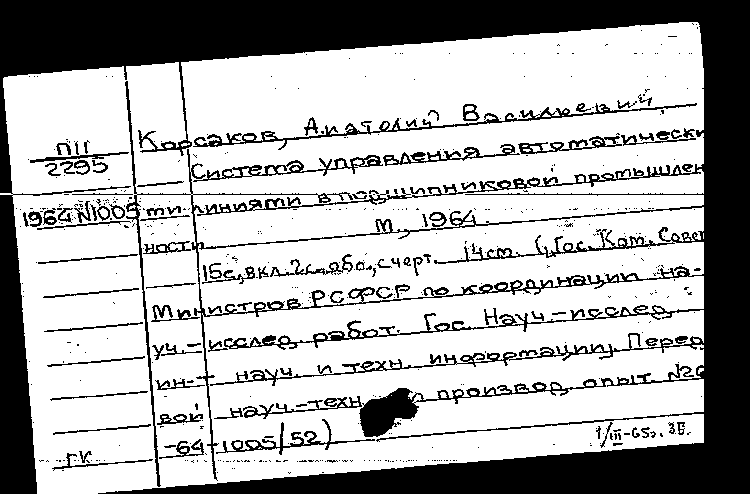 П11
2295
1964 N1005
Корсаков, Анатолий Васильевич.
Система управления автоматически
ми линиями в подшипниковой промышлен
ности. М., 1964.
15с., вкл. 2 с. обл., с черт. 14см. (Гос. Ком. Совет
Министров РСФСР по координации на-
уч.-исслед. работ. Гос. Науч.-исслед.
ин-т науч. и техн. информации, Перед
вой науч.-техн. и производ. опыт. №26
-64-1005/52)
ГК
1/III-65г. ЗЕ.